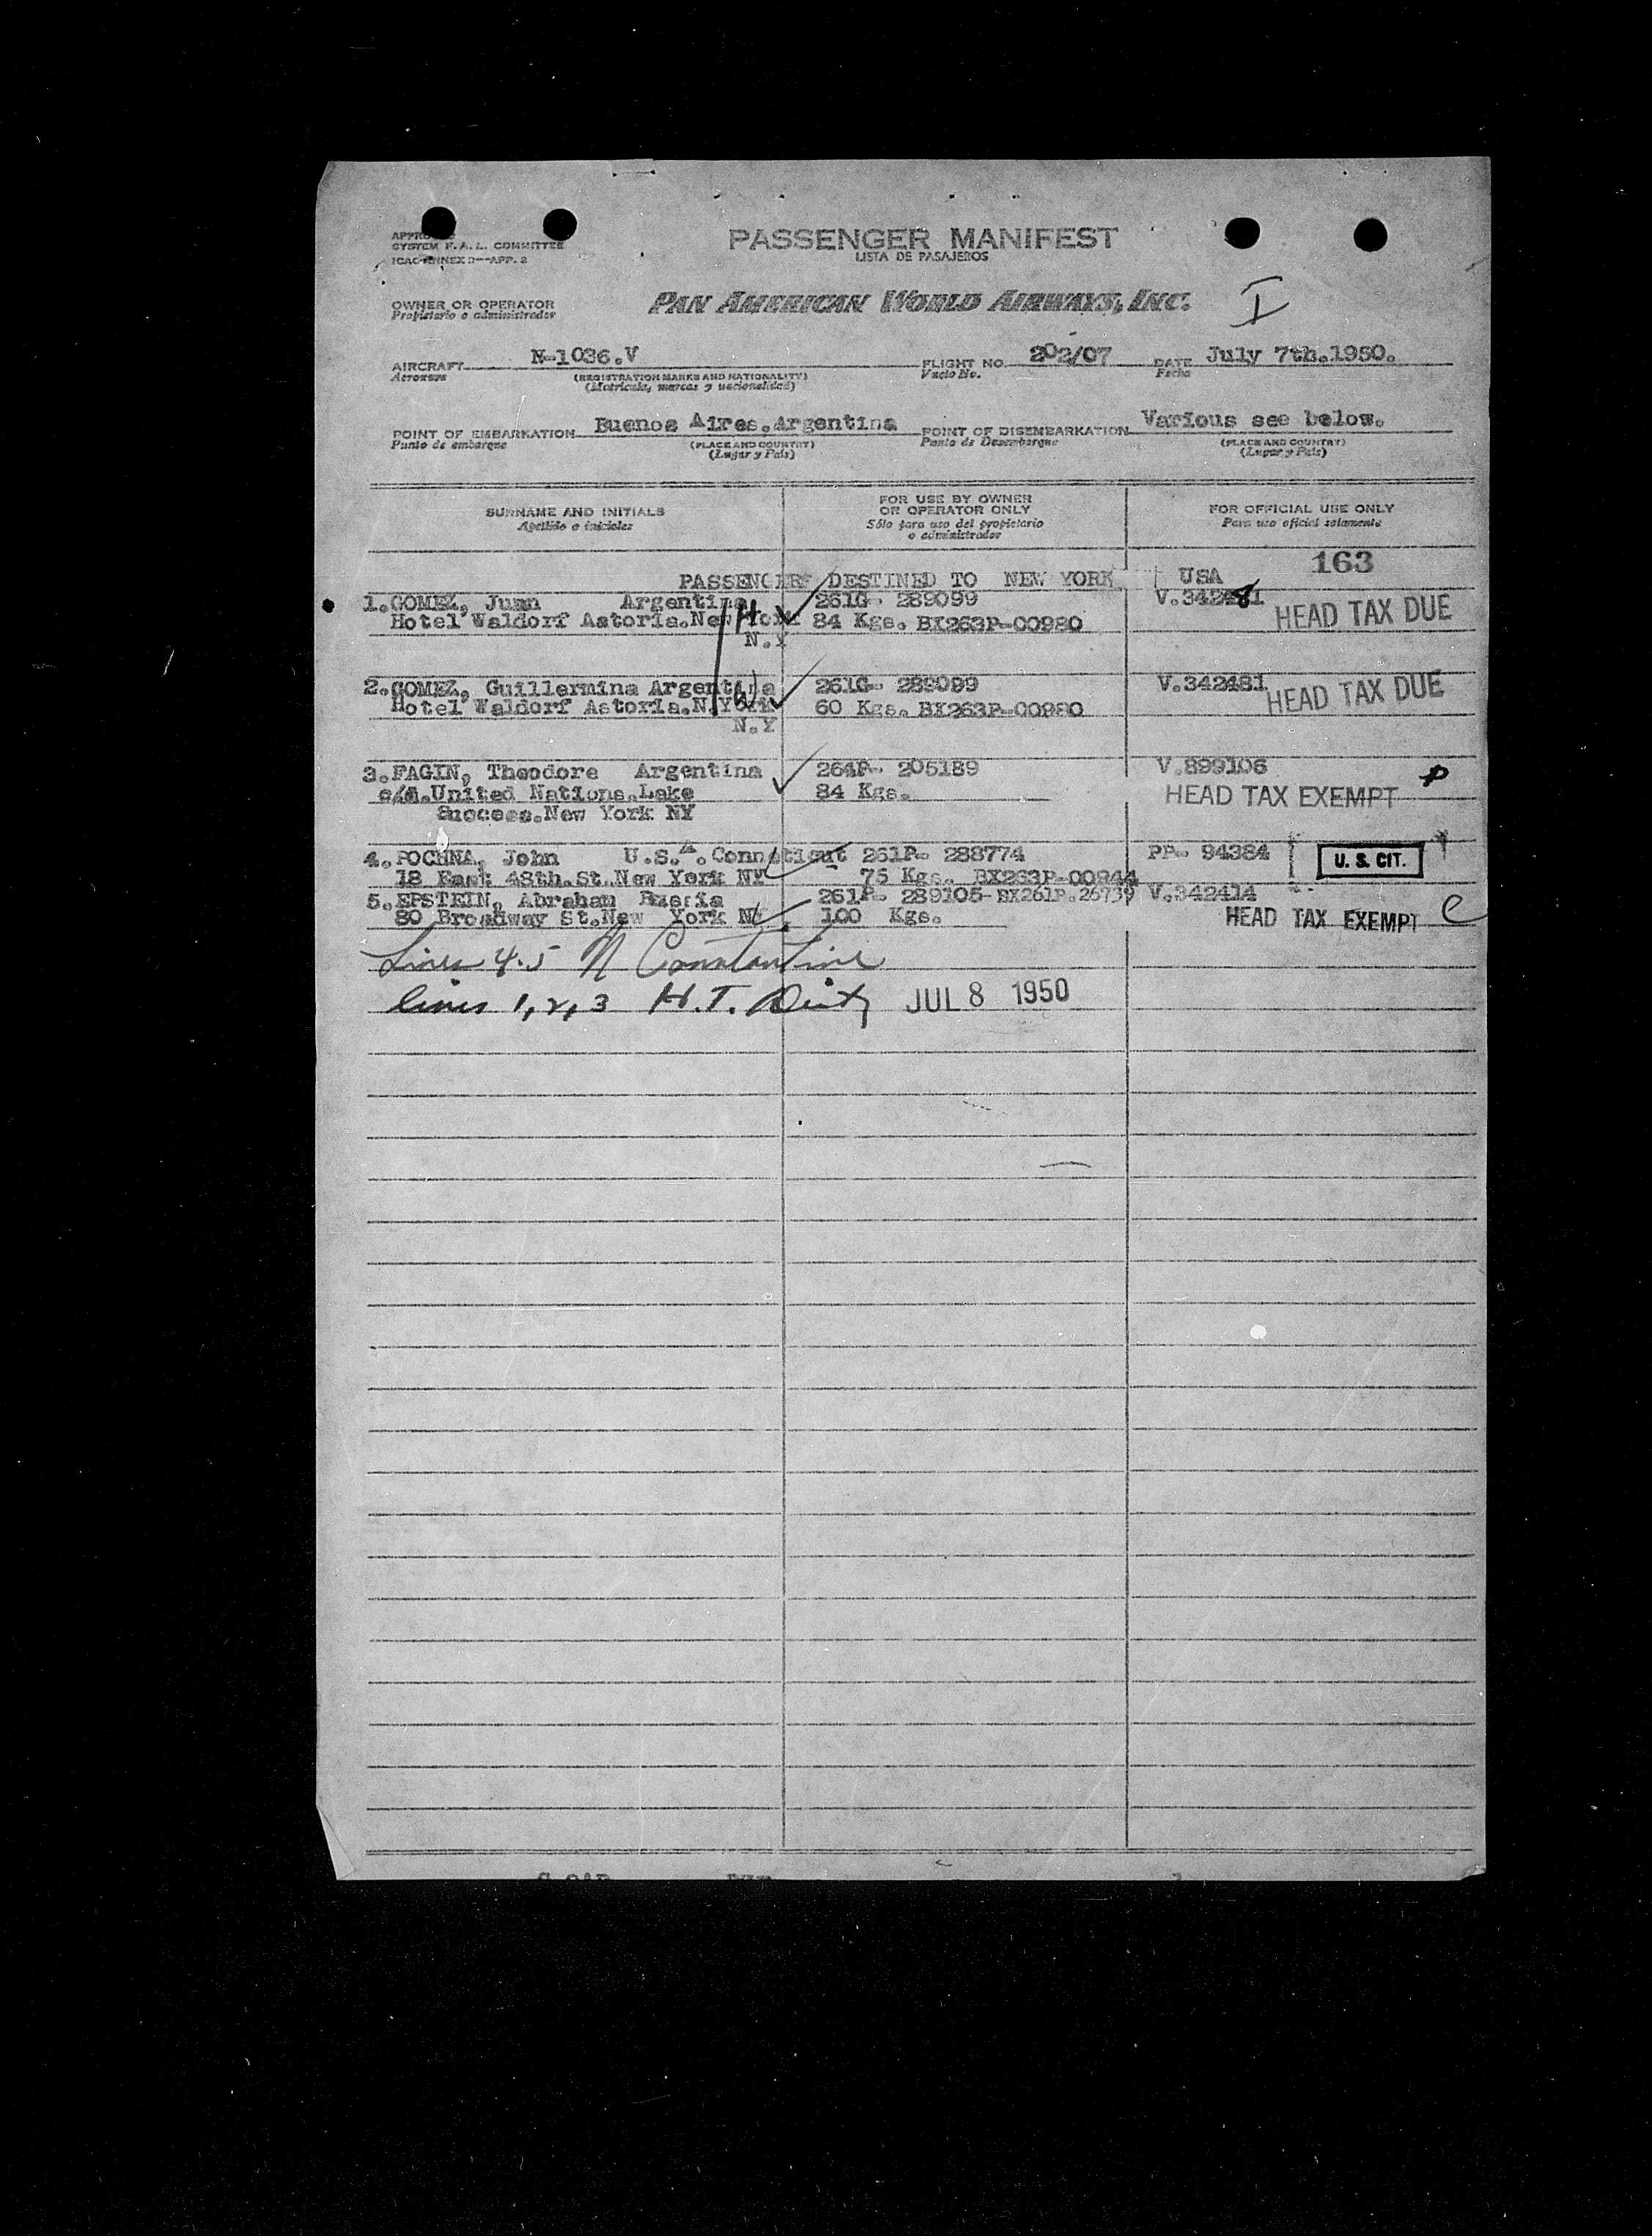 APPROVED
SYSTEM F. A. L. COMMITTEE
ICAO ANNEX 9—APP. 2
PASSENGER MANIFEST
LISTA DE PASAJEROS
OWNER OR OPERATOR
Propietario o administrador
PAN AMERICAN WORLD AIRWAYS, INC.
I
AIRCRAFT N-1036.V FLIGHT NO. 202/07 DATE July 7th.1950.
Aeronave (REGISTRATION MARKS AND NATIONALITY) Vuelo No. Fecha
(Matricula, marcas y nacionalidad)
POINT OF EMBARKATION Buenos Aires.Argentina POINT OF DISEMBARKATION Various see below.
Punto de embarque (PLACE AND COUNTRY) Punto de Desembarque (PLACE AND COUNTRY)
(Lugar y País) (Lugar y País)
SURNAME AND INITIALS FOR USE BY OWNER OR OPERATOR ONLY FOR OFFICIAL USE ONLY
Apellido e iniciales Sólo para uso del propietario o administrador Para uso oficial solamente
163
PASSENGERS DESTINED TO NEW YORK USA
1.GOMEZ, Juan Argentina 261G- 289099 V.342481 HEAD TAX DUE
Hotel Waldorf Astoria.New York 84 Kgs. BX263P-00980
N.Y
2.GOMEZ, Guillermina Argentina 261G- 289099 V.342481 HEAD TAX DUE
Hotel Waldorf Astoria.N.York 60 Kgs. BX263P-00980
N.Y
3.FAGIN, Theodore Argentina 264P- 205189 V.899106
c/o.United Nations.Lake 84 Kgs. HEAD TAX EXEMPT P
Success.New York NY
4.POCHNA, John U.S.A. Conneticut 261P- 288774 PP- 94384 U. S. CIT.
18 East 48th.St.New York NY 75 Kgs. BX263P-00944
5.EPSTEIN, Abraham Russia 261P- 289105-BX261P.26739 V.342414
80 Broadway St.New York NY 100 Kgs. HEAD TAX EXEMPT C
Lines 4.5 N Constantine
lines 1, 2, 3 H.T. JUL 8 1950